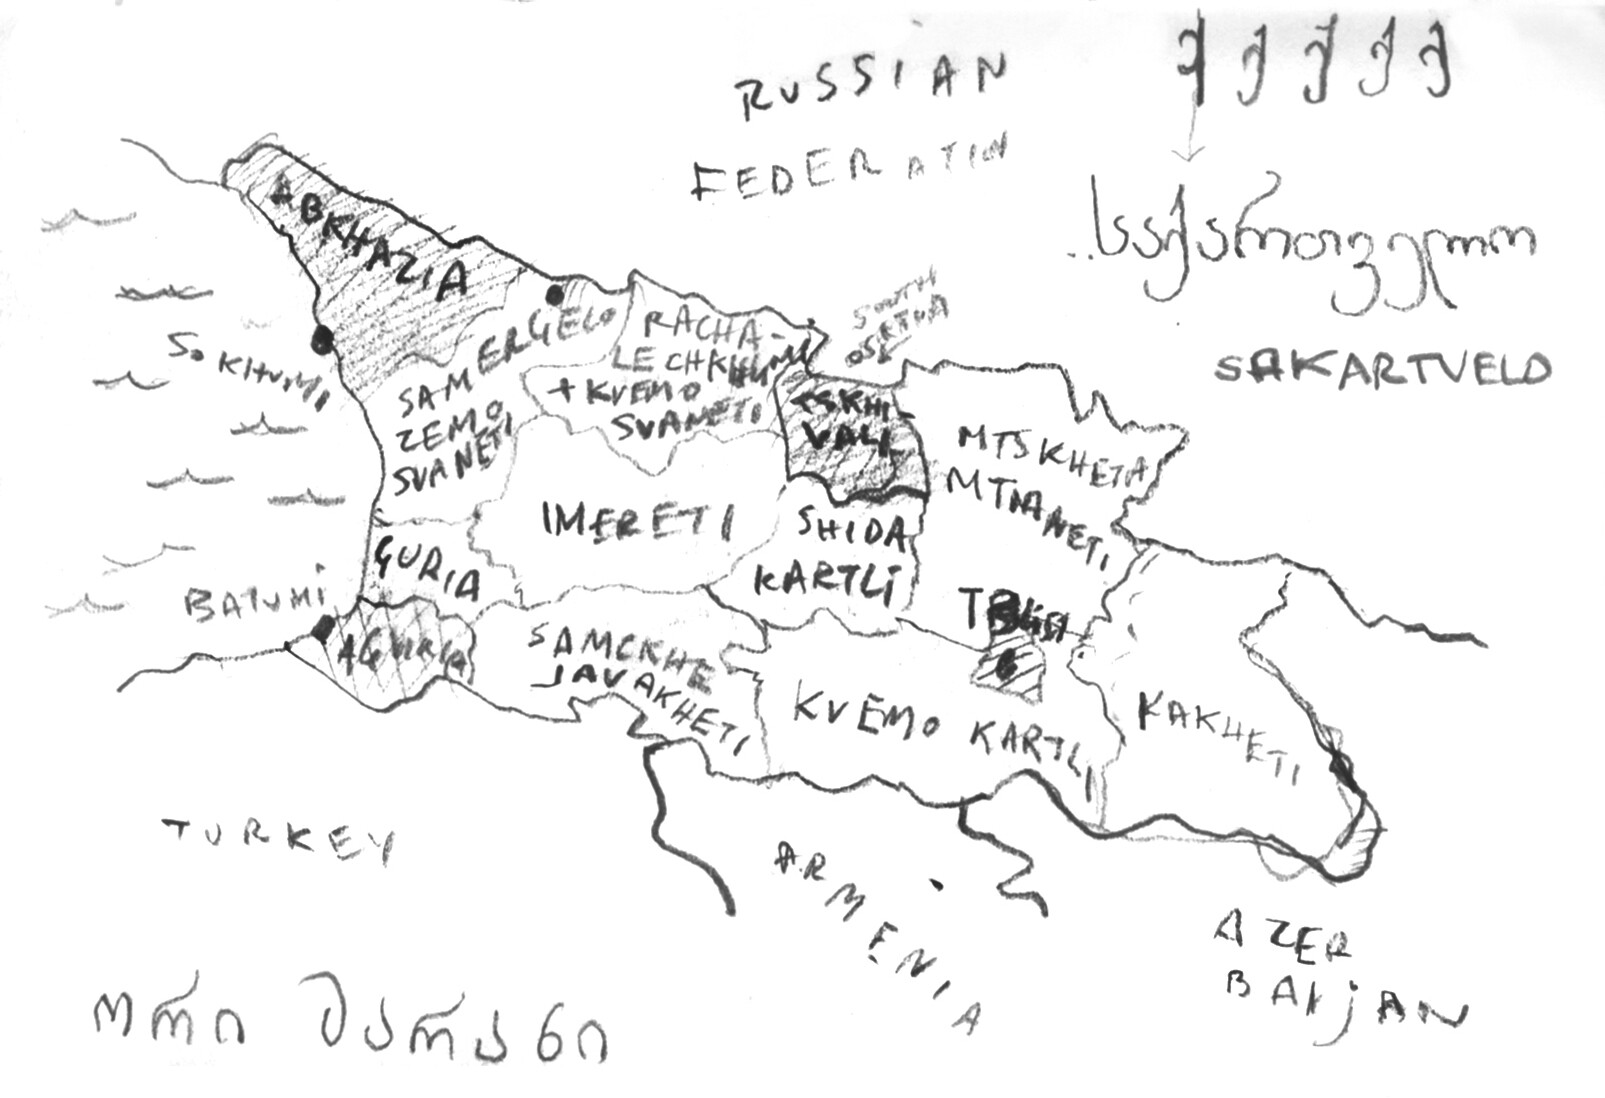 RUSSIAN
FEDERATION
ქ ქ ქ ქ ქ
საქართველო
SAKARTVELO
ABKHAZIA
SOKHUMI
SAMERGELO
ZEMO
SVANETI
RACHA-
LECHKHUMI
+ KVEMO
SVANETI
SOUTH
TSKHI-
VALI
MTSKHETA
MTIANETI
IMERETI
SHIDA
KARTLI
GURIA
BATUMI
SAMCKHE
JAVAKHETI
KVEMO KARTLI
KAKHETI
TURKEY
ARMENIA
AZER
BAIJAN
ორი მარანი